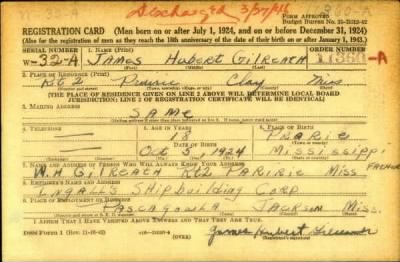 Discharged 3/27/46
FORM APPROVED
Budget Bureau No.
REGISTRATION CARD (Men born on or after July 1, 1924, and on or before December 31, 1924)
(Also for the registration of men as they reach the 18th anniversary of the date of their birth on or after January 1, 1943.)
SERIAL NUMBER 1. NAME (Print) ORDER NUMBER
W-32-A JAMES Hubert GilREATH -A
(First) (Middle) (Last)
2. PLACE OF RESIDENCE (Print)
Rt 2 Clay Miss
(THE PLACE OF RESIDENCE GIVEN ON LINE 2 ABOVE WILL DETERMINE LOCAL BOARD
JURISDICTION; LINE 2 OF REGISTRATION CERTIFICATE WILL BE IDENTICAL)
3. MAILING ADDRESS
SAMe
4. TELEPHONE 5. AGE IN YEARS 6. PLACE OF BIRTH
18 PRARIE
DATE OF BIRTH
Oct 5, 1924 Mississippi
7. NAME AND ADDRESS OF PERSON WHO WILL ALWAYS KNOW YOUR ADDRESS
W.H GilREATH Rt2 PARIRIE Miss FATHER
8. EMPLOYER'S NAME AND ADDRESS
INGALLS Shipbuilding Corp
9. PLACE OF EMPLOYMENT OR BUSINESS
PASCAGOULA JACKSON Miss.
I AFFIRM THAT I HAVE VERIFIED ABOVE ANSWERS AND THAT THEY ARE TRUE.
DSS Form 1 (Rev. 11-16-42) James Hubert
(Registrant's signature)